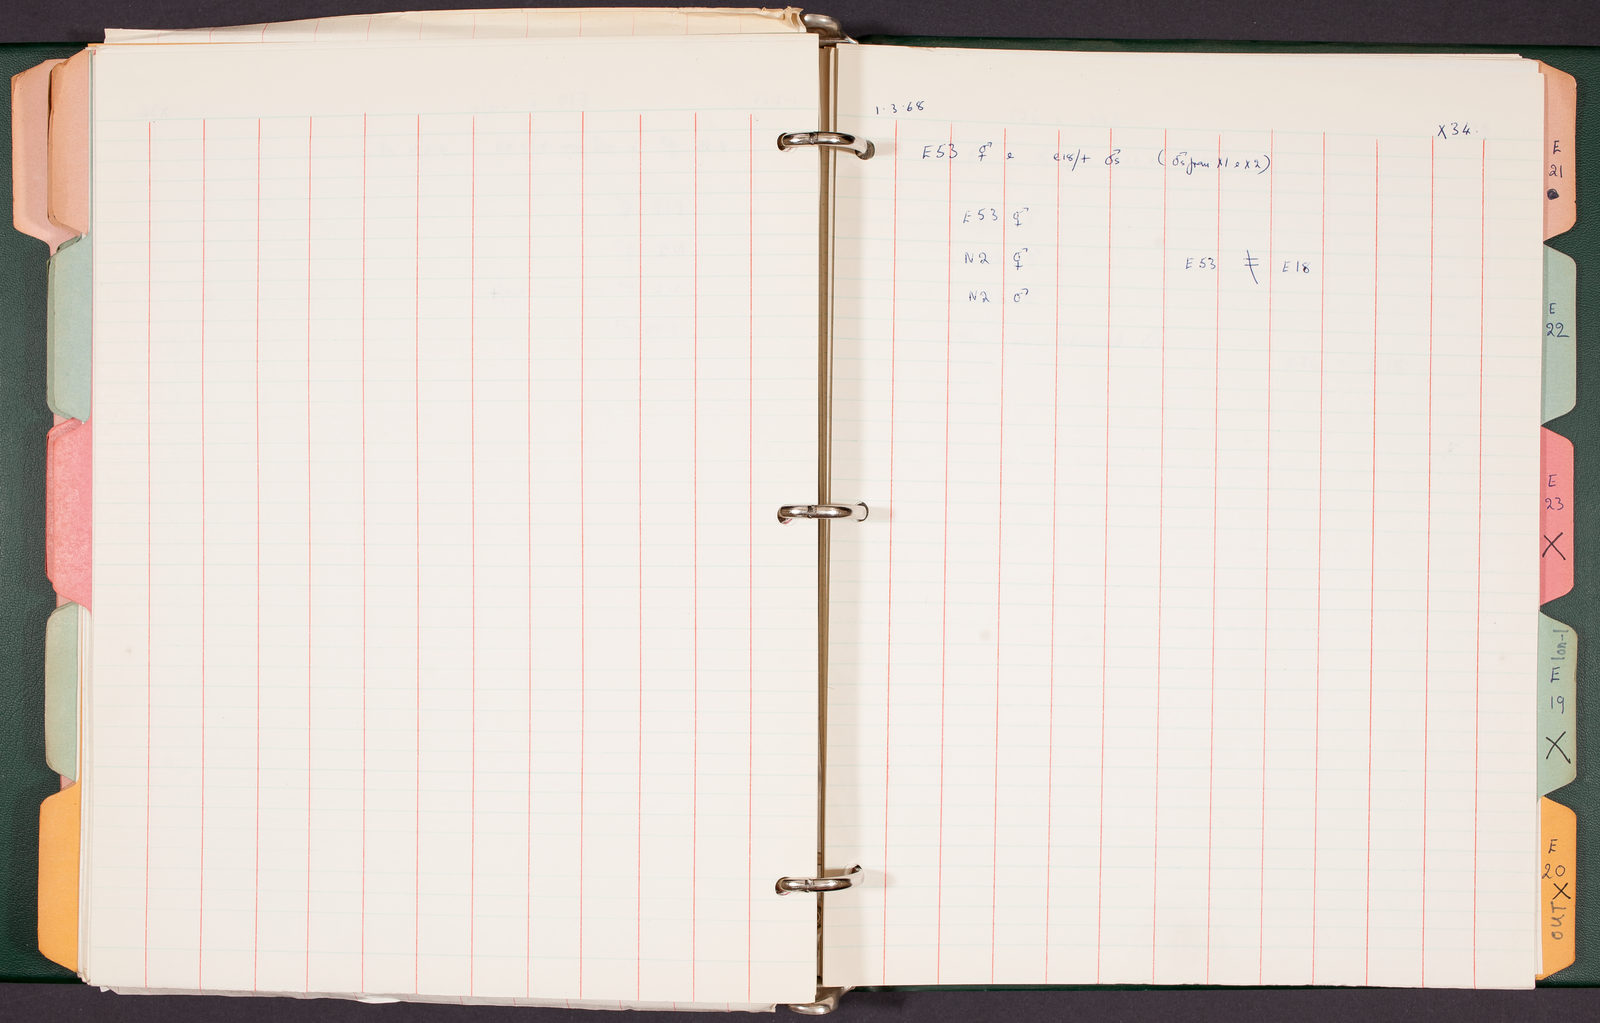 1.3.68
X34.
E53 ⚥ e e18/+ ♂s (♂s from X1 e X2)
E53 ⚥
N2 ⚥ E53 ≢ E18
N2 ♂
E
21
E
22
E
23
X
E lon-1
19
X
E
20
X
OUT